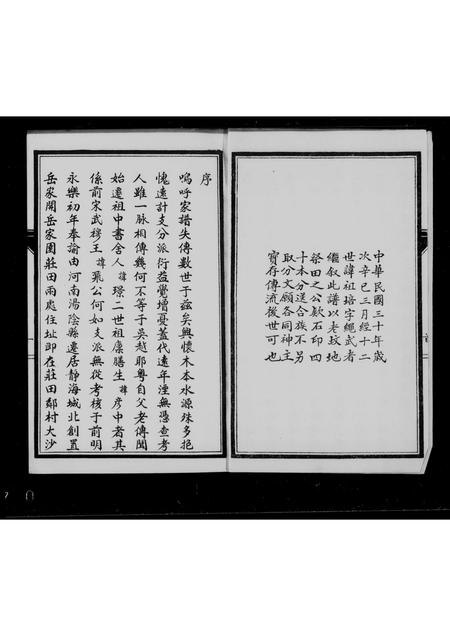 中華民國三十年歲
次辛巳三月經十二
世諱祖培字繩武者
繼叙此譜以老坟地
祭田之公欵石印四
十本分送合族不另
取分文願各同神主
寳存傳流後世可也
序
嗚呼家譜失傳數世于兹矣興懷木本水源殊多抱
愧遠計支分派衍益覺增憂蓋代遠年湮無憑查考
人雖一脉相傳幾何不等于吳越耶粤自父老傳聞
始遷祖中書舍人諱璟二世祖廪膳生諱彦中者其
係前宋武穆王諱飛公何如支派無從考核于前明
永樂初年奉諭由河南湯陰縣遷居靜海城北創置
岳家開岳家園莊田兩處住址即在莊田鄰村大沙